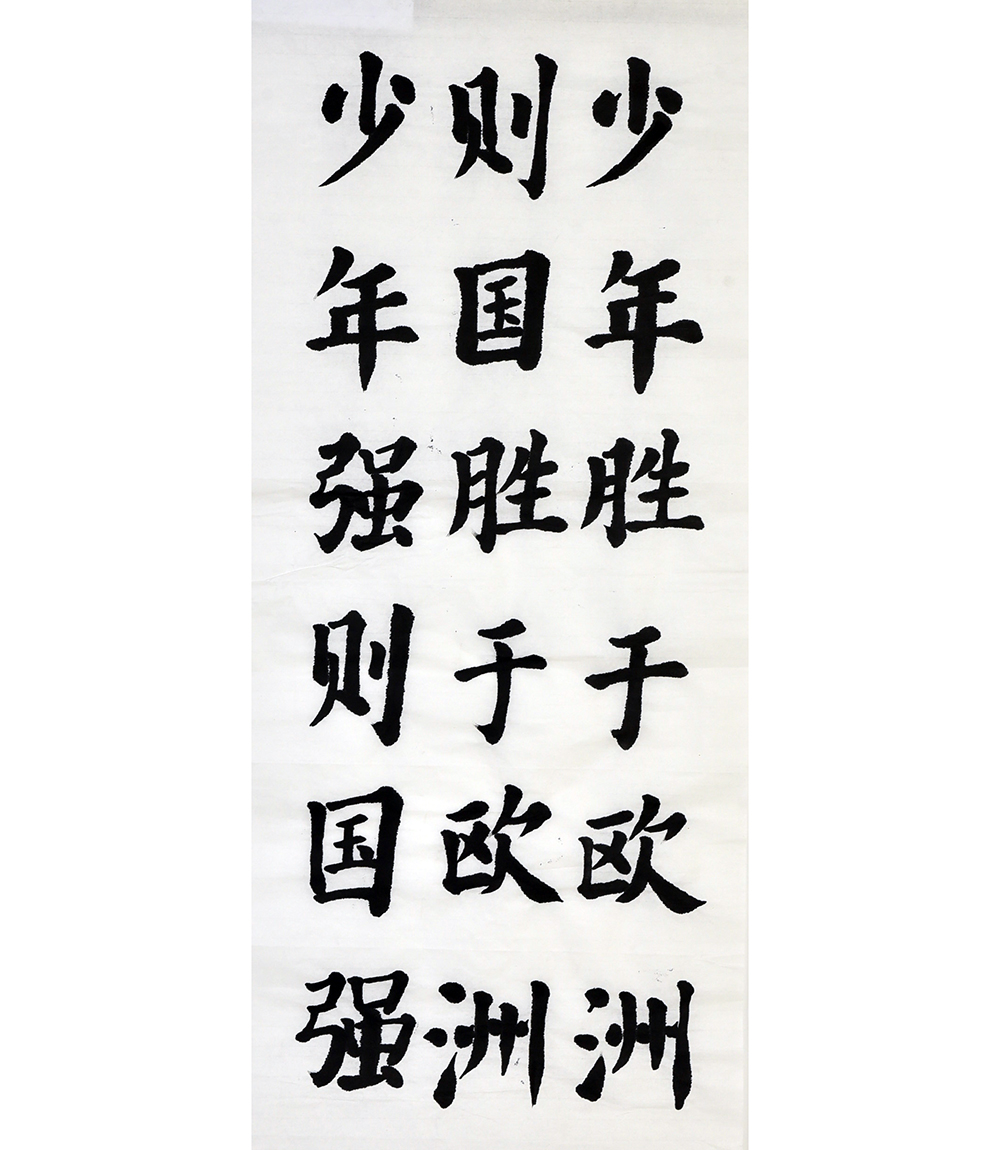 少年胜于欧洲
则国胜于欧洲
少年强则国强